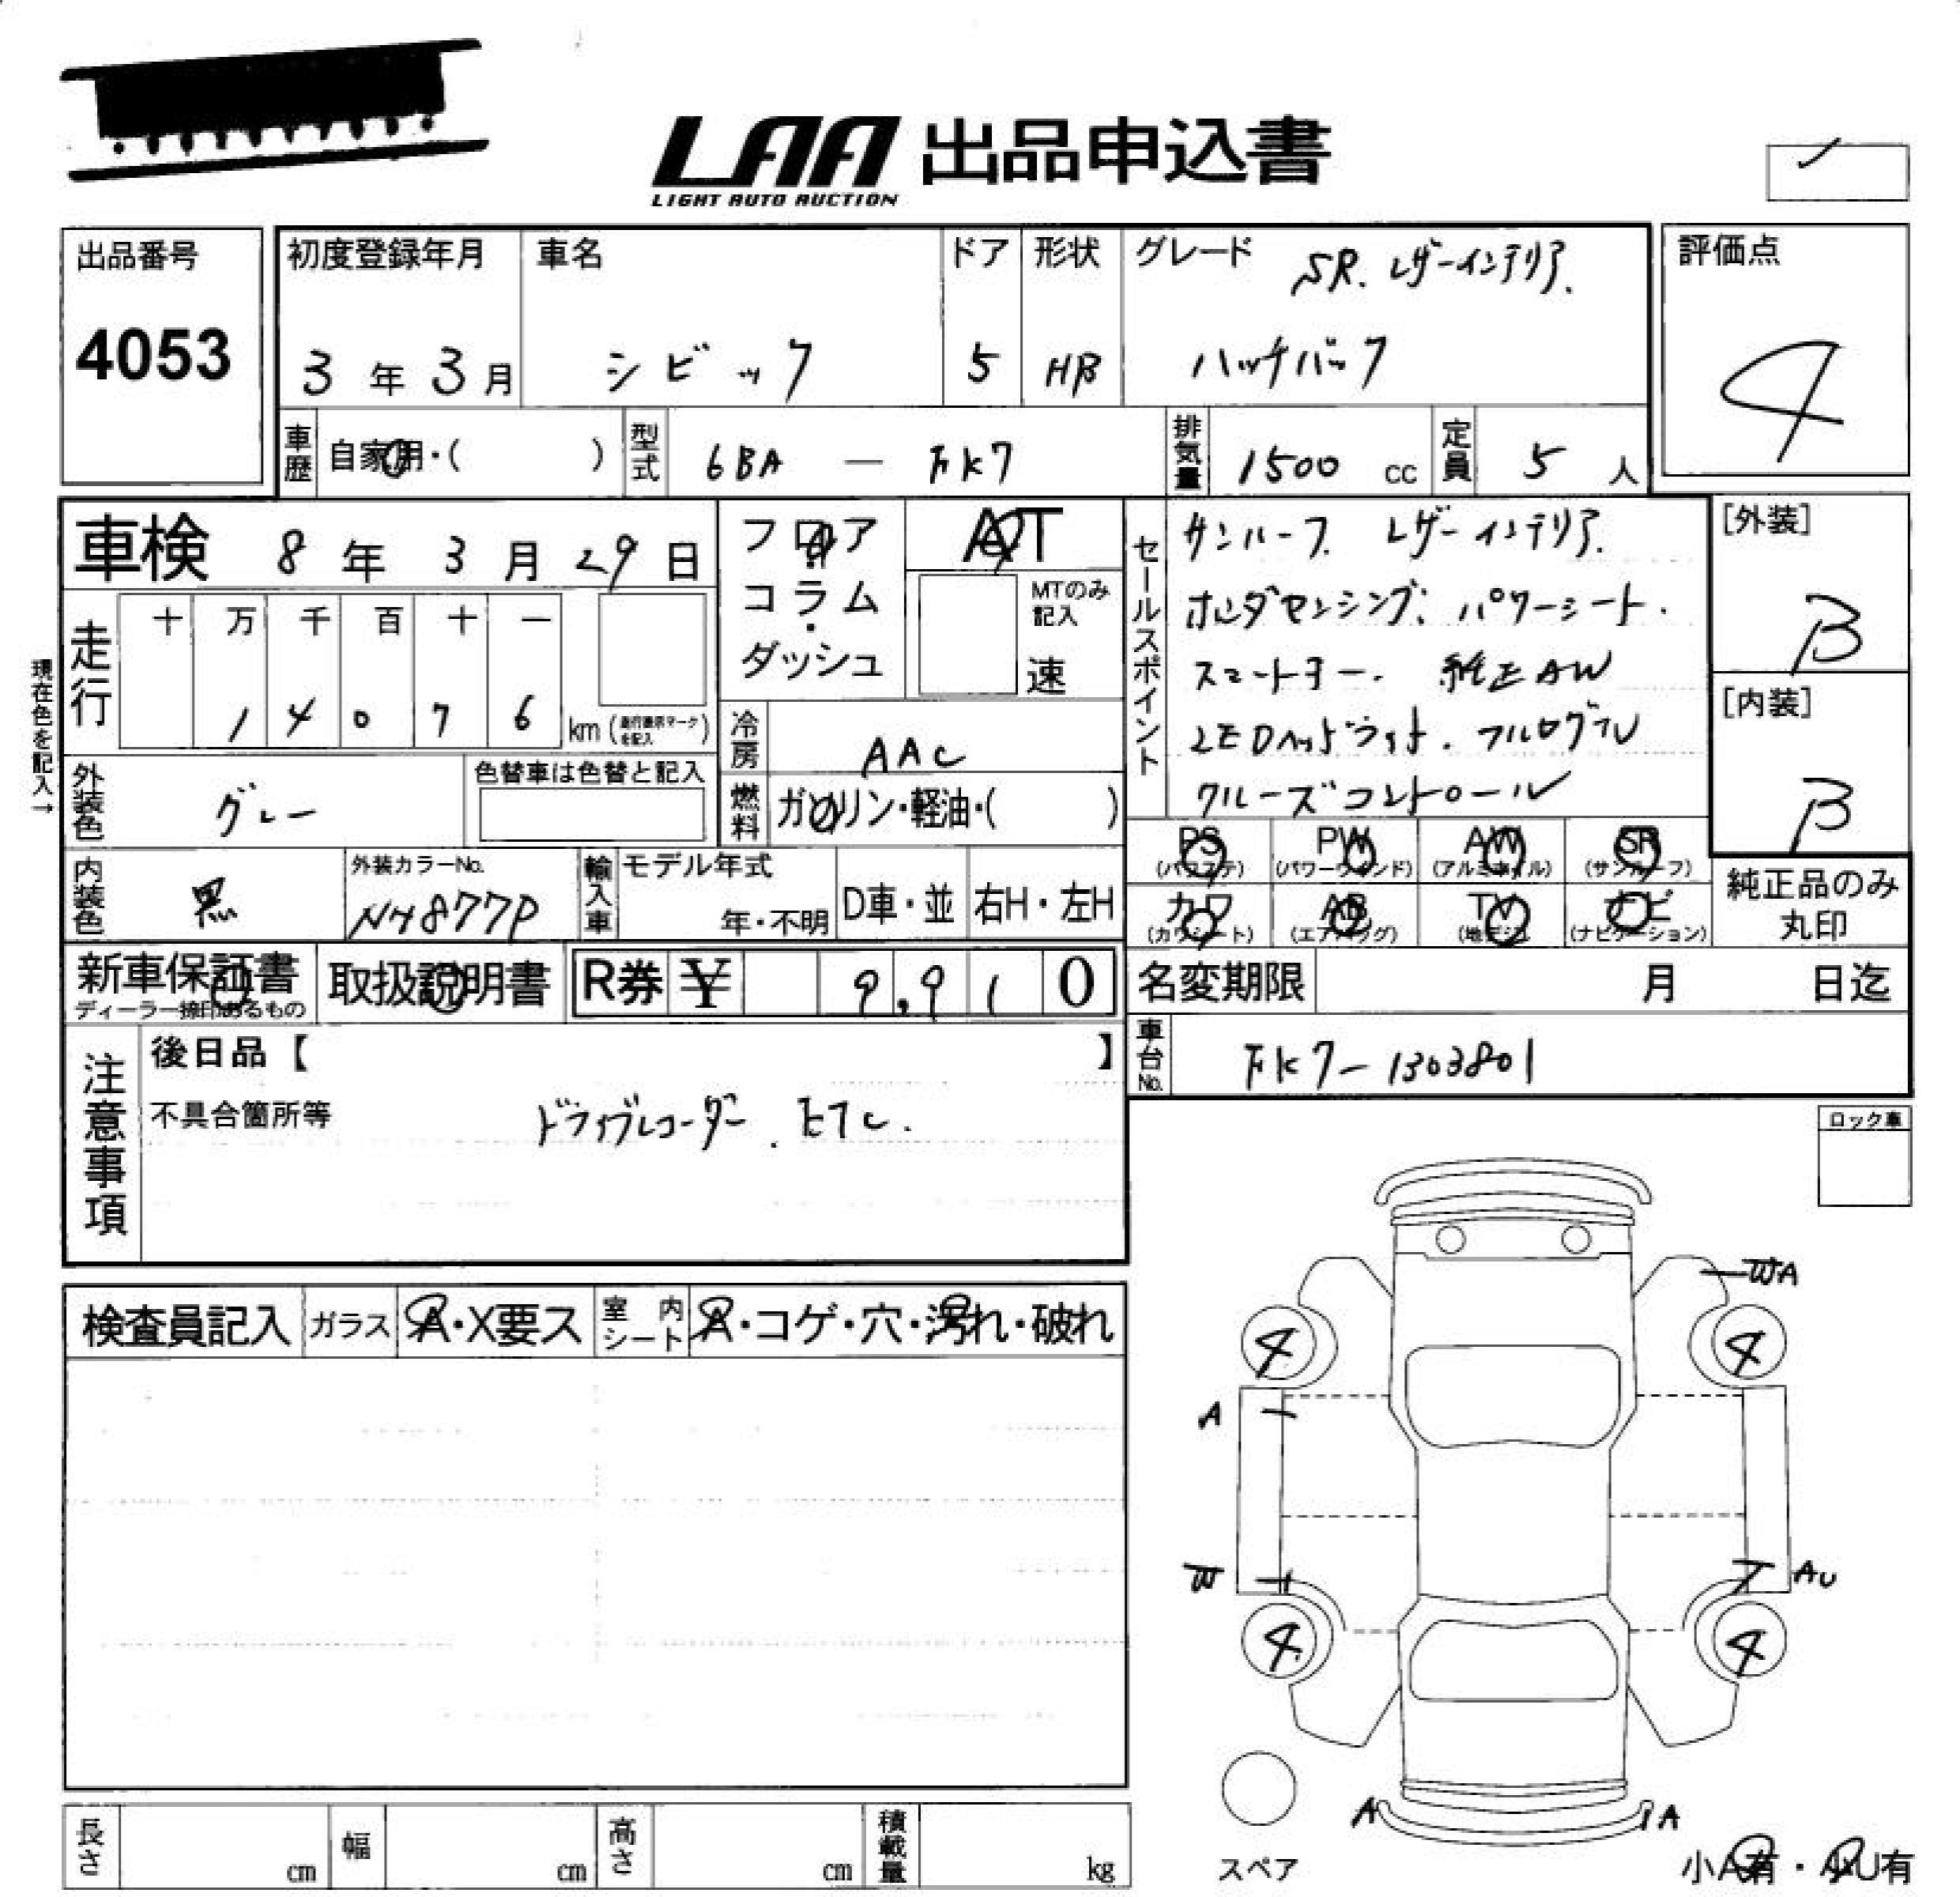 LAA 出品申込書
LIGHT AUTO AUCTION
出品番号
4053
初度登録年月
3年3月
車名
シビック
ドア
5
形状
HB
グレード SR. レザーインテリア.
ハッチバック
評価点
4
車歴 自家用・( )
型式 6BA — FK7
排気量 1500 cc
定員 5 人
車検 8年3月29日
フロア
・
コラム
・
ダッシュ
AT
MTのみ
記入
速
現在色を記入→
走行
十 万 千 百 十 一
1 4 0 7 6 km (走行表示マークを記入)
冷房 AAC
外装色 グレー
色替車は色替と記入
燃料 ガソリン・軽油・( )
セールスポイント
サンルーフ. レザーインテリア.
ホンダセンシング. パワーシート.
スマートキー. 純正AW
LEDヘッドライト. フルセグTV
クルーズコントロール
[外装]
B
[内装]
B
内装色 黒
外装カラーNo.
NH877P
輸入車
モデル年式
年・不明
D車・並
右H・左H
PS
(パワステ)
PW
(パワーウインド)
AW
(アルミホイル)
SR
(サンルーフ)
カワ
(カワシート)
AB
(エアバッグ)
TV
(地デジ)
ナビ
(ナビゲーション)
純正品のみ
丸印
新車保証書
ディーラー捺印あるもの
取扱説明書
R券 ¥ 9,910
名変期限 月 日迄
車台No. FK7-1303801
注意事項
後日品【 】
不具合箇所等
ドライブレコーダー. ETC.
ロック車
検査員記入
ガラス A・X要ス
室内シート A・コゲ・穴・汚れ・破れ
WA
4 4
A
W AU
4 4
A A
スペア
小A有・小U有
長さ cm
幅 cm
高さ cm
積載量 kg